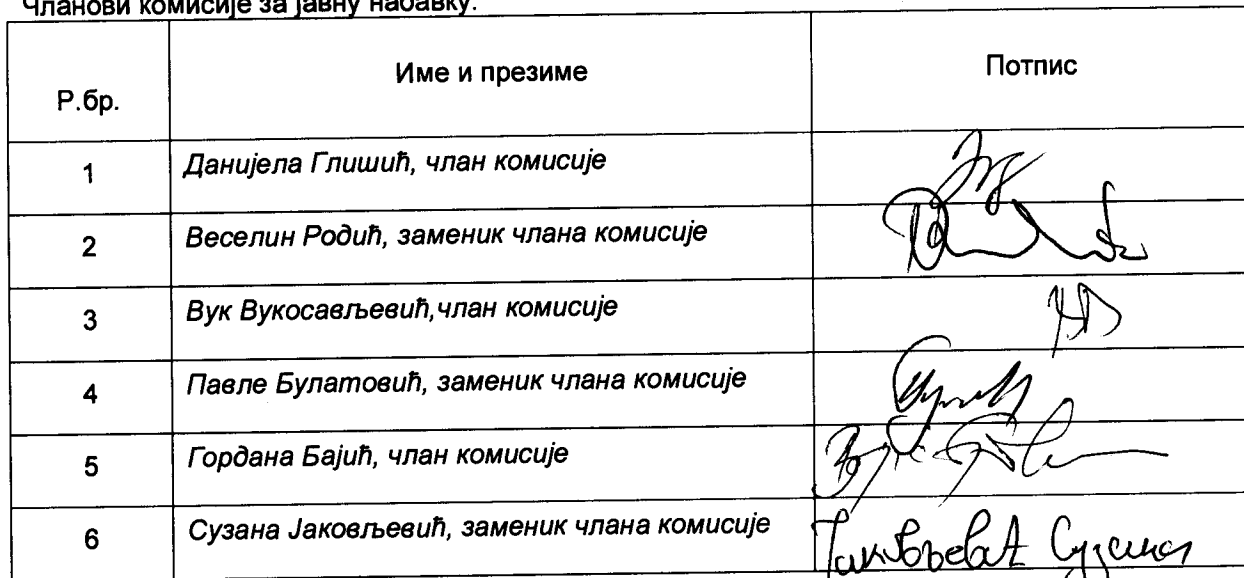 Чланови комисије за јавну набавку:
Р.бр. Име и презиме Потпис
1 Данијела Глишић, члан комисије
2 Веселин Родић, заменик члана комисије
3 Вук Вукосављевић,члан комисије
4 Павле Булатовић, заменик члана комисије
5 Гордана Бајић, члан комисије
6 Сузана Јаковљевић, заменик члана комисије Јаковљевић Сузана